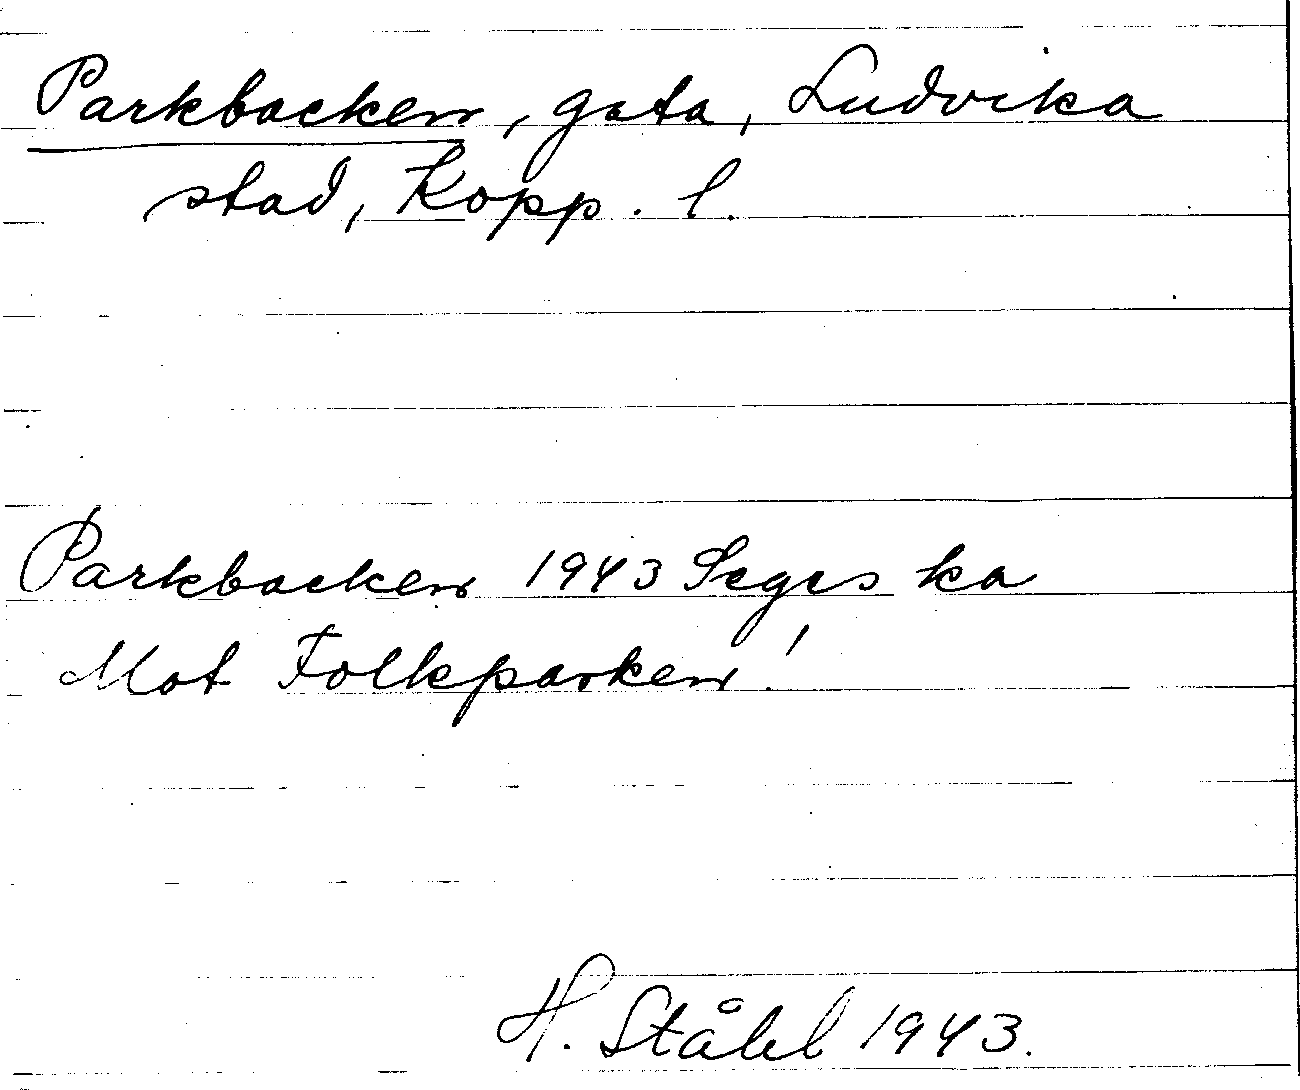 Parkbacken, gata, Ludvika
stad, Kopp. l.
Parkbacken 1943 Seges ka
Mot Folkparken!
H. Ståhl 1943.